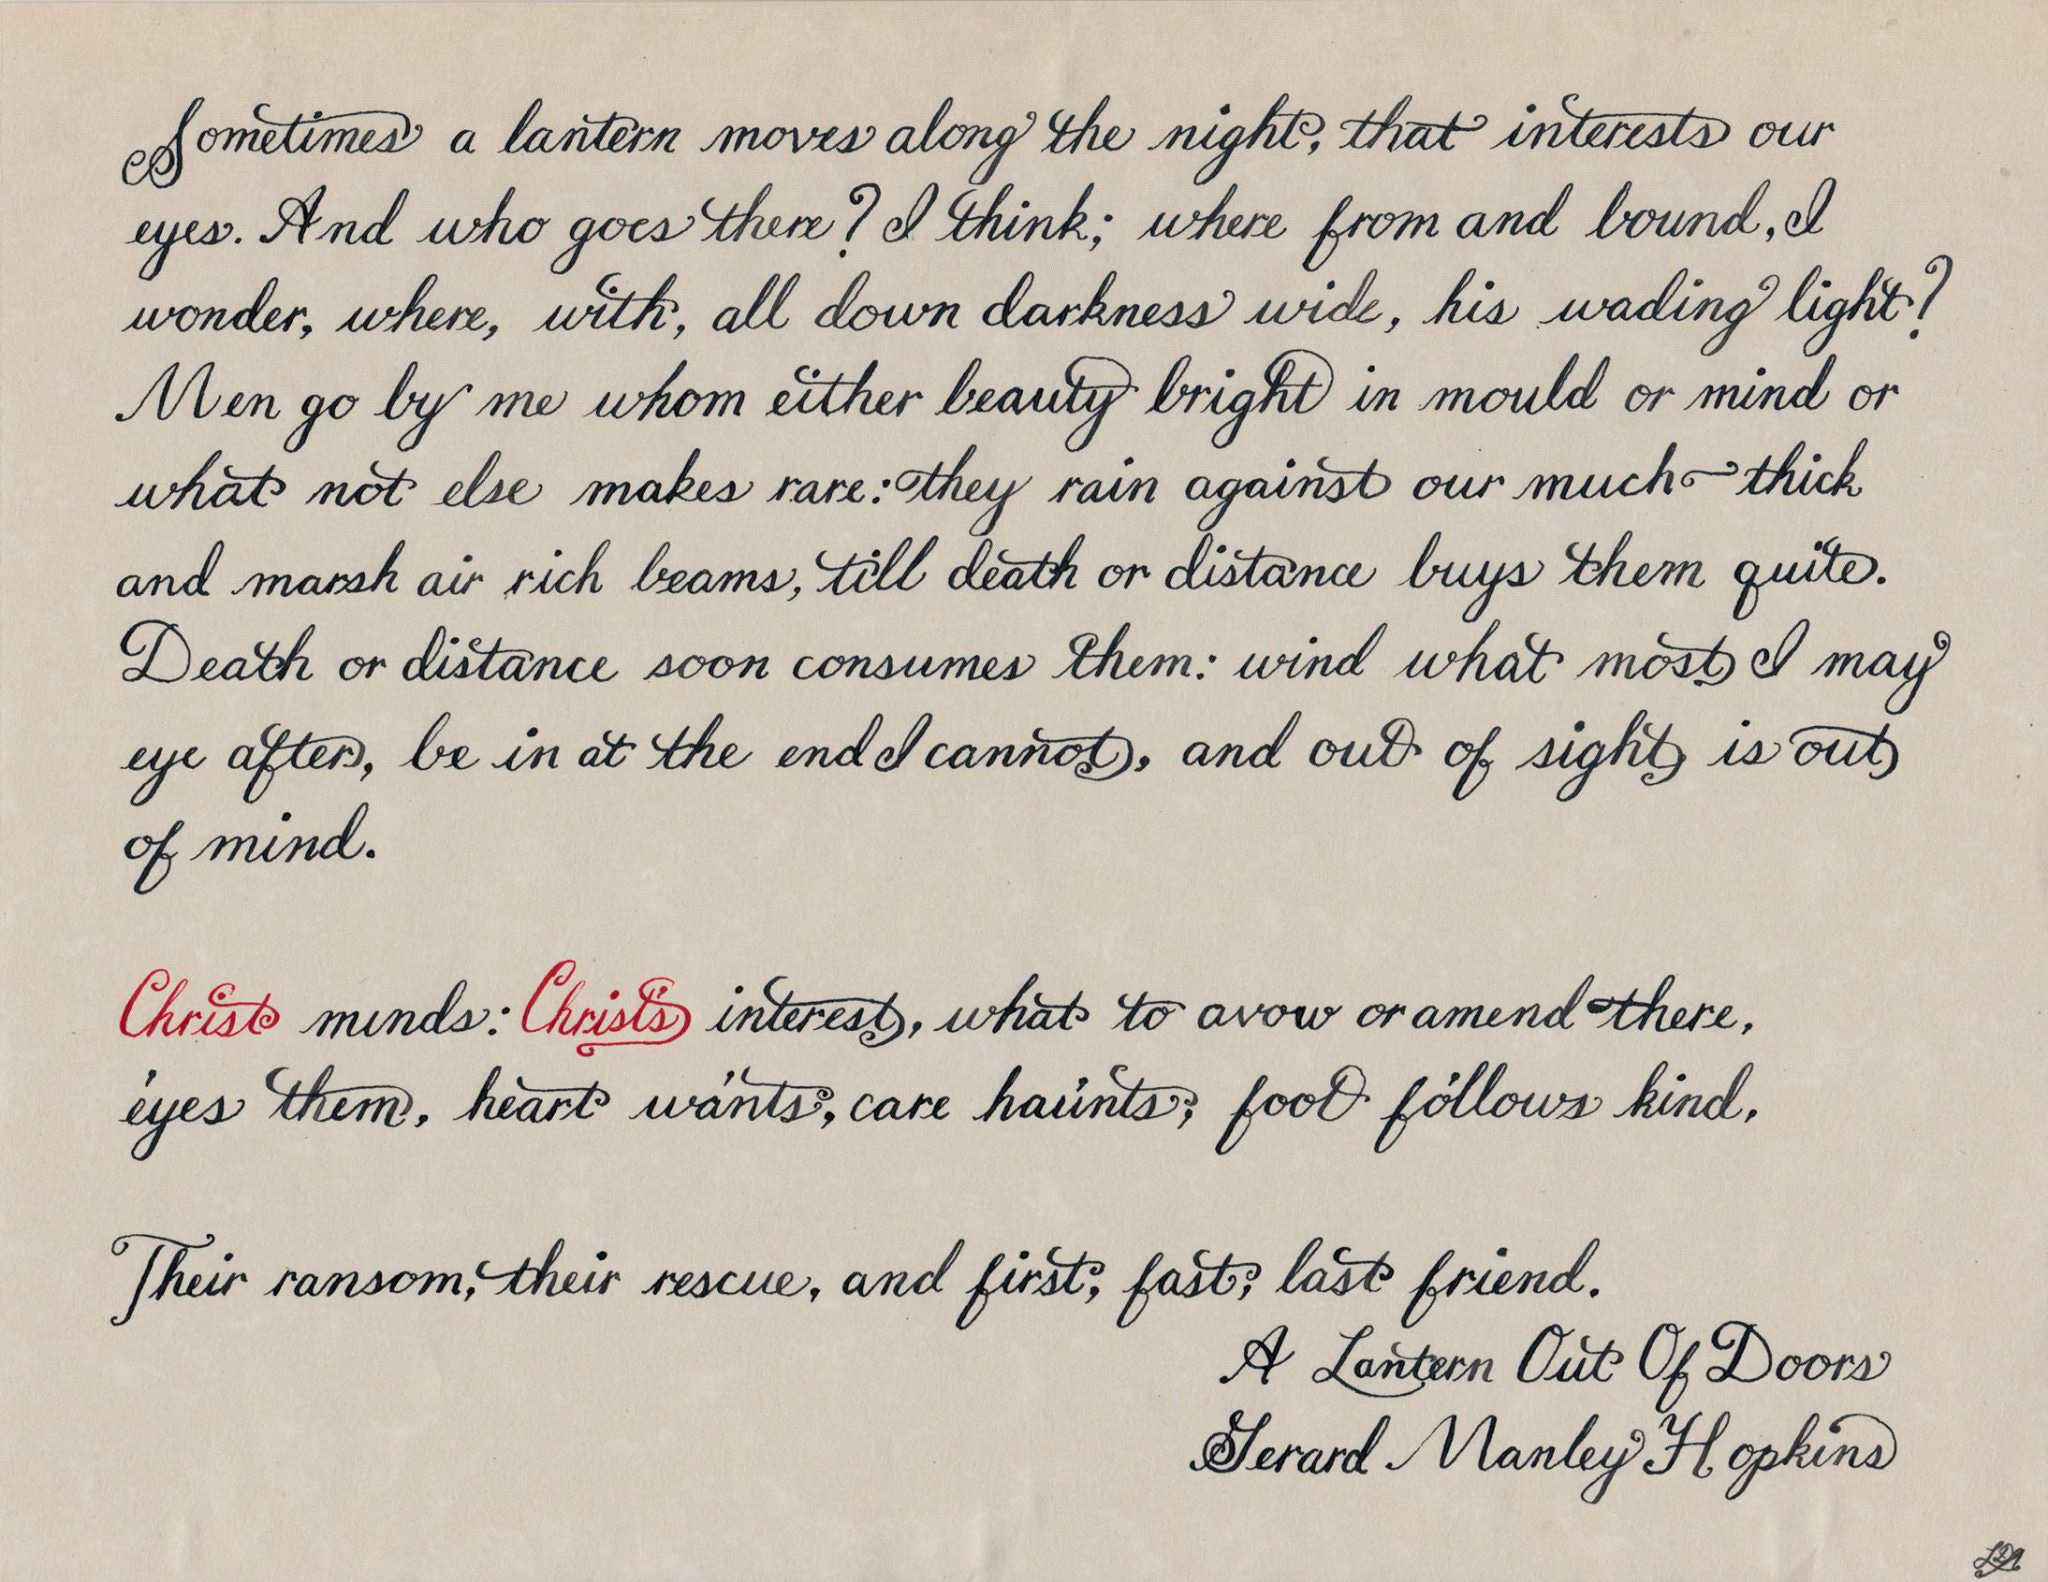 Sometimes a lantern moves along the night, that interests our
eyes. And who goes there? I think; where from and bound, I
wonder, where, with, all down darkness wide, his wading light?
Men go by me whom either beauty bright in mould or mind or
what not else makes rare: they rain against our much-thick
and marsh air rich beams, till death or distance buys them quite.
Death or distance soon consumes them: wind what most I may
eye after, be in at the end I cannot, and out of sight is out
of mind.
Christ minds: Christ's interest, what to avow or amend there,
éyes them, heart wánts, care haúnts, foot fóllows kind,
Their ransom, their rescue, and first, fast, last friend.
A Lantern Out Of Doors
Gerard Manley Hopkins